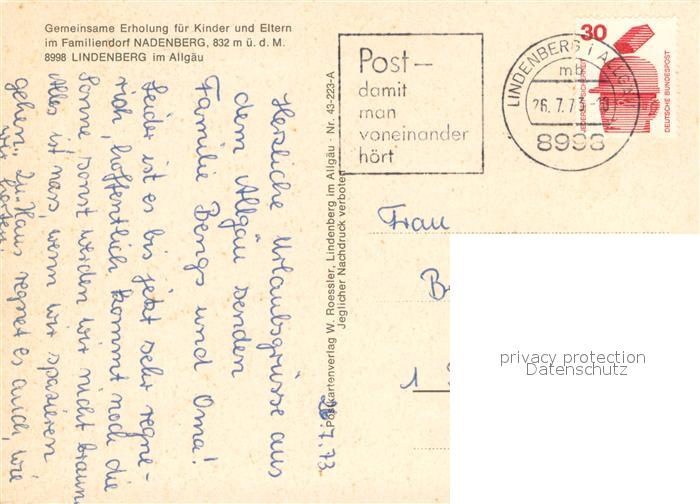 Gemeinsame Erholung für Kinder und Eltern
im Familiendorf NADENBERG, 832 m ü. d. M.
8998 LINDENBERG im Allgäu
Post –
damit
man
voneinander
hört
LINDENBERG i ALLGÄU
mb
26.7.73-10
8998
30
JEDERZEIT SICHERHEIT
DEUTSCHE BUNDESPOST
26.7.73
Herzliche Urlaubsgrüsse aus
dem Allgäu senden
Familie Bengs und Oma!
Leider ist es bis jetzt sehr regne-
rich, hoffentlich kommt noch die
Sonne, sonst werden wir nicht braun
Alles ist nass, wenn wir spazieren
gehen. Zu Haus regnet es auch, wie
wir hörten.
Postkartenverlag W. Roessler, Lindenberg im Allgäu · Nr. 43-223-A
Jeglicher Nachdruck verboten
Frau
B
1
privacy protection
Datenschutz